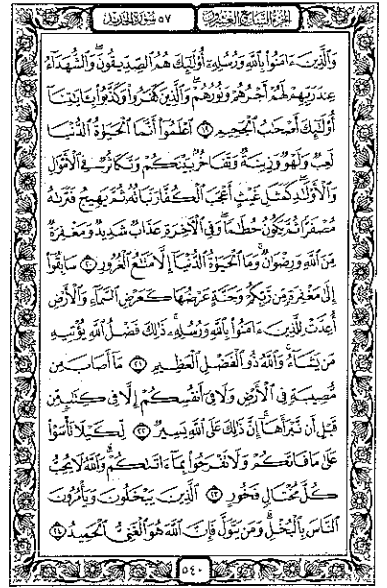 الجزء السابع والعشرون ٥٧ سورة الحديد
وَٱلَّذِينَ ءَامَنُوا۟ بِٱللَّهِ وَرُسُلِهِۦٓ أُو۟لَٰٓئِكَ هُمُ ٱلصِّدِّيقُونَ ۖ وَٱلشُّهَدَآءُ
عِندَ رَبِّهِمْ لَهُمْ أَجْرُهُمْ وَنُورُهُمْ ۖ وَٱلَّذِينَ كَفَرُوا۟ وَكَذَّبُوا۟ بِـَٔايَٰتِنَآ
أُو۟لَٰٓئِكَ أَصْحَٰبُ ٱلْجَحِيمِ ١٩ ٱعْلَمُوٓا۟ أَنَّمَا ٱلْحَيَوٰةُ ٱلدُّنْيَا
لَعِبٌ وَلَهْوٌ وَزِينَةٌ وَتَفَاخُرٌۢ بَيْنَكُمْ وَتَكَاثُرٌ فِى ٱلْأَمْوَٰلِ
وَٱلْأَوْلَٰدِ ۖ كَمَثَلِ غَيْثٍ أَعْجَبَ ٱلْكُفَّارَ نَبَاتُهُۥ ثُمَّ يَهِيجُ فَتَرَىٰهُ
مُصْفَرًّا ثُمَّ يَكُونُ حُطَٰمًا ۖ وَفِى ٱلْءَاخِرَةِ عَذَابٌ شَدِيدٌ وَمَغْفِرَةٌ
مِّنَ ٱللَّهِ وَرِضْوَٰنٌ ۚ وَمَا ٱلْحَيَوٰةُ ٱلدُّنْيَآ إِلَّا مَتَٰعُ ٱلْغُرُورِ ٢٠ سَابِقُوٓا۟
إِلَىٰ مَغْفِرَةٍ مِّن رَّبِّكُمْ وَجَنَّةٍ عَرْضُهَا كَعَرْضِ ٱلسَّمَآءِ وَٱلْأَرْضِ
أُعِدَّتْ لِلَّذِينَ ءَامَنُوا۟ بِٱللَّهِ وَرُسُلِهِۦ ۚ ذَٰلِكَ فَضْلُ ٱللَّهِ يُؤْتِيهِ
مَن يَشَآءُ ۚ وَٱللَّهُ ذُو ٱلْفَضْلِ ٱلْعَظِيمِ ٢١ مَآ أَصَابَ مِن
مُّصِيبَةٍ فِى ٱلْأَرْضِ وَلَا فِىٓ أَنفُسِكُمْ إِلَّا فِى كِتَٰبٍ مِّن
قَبْلِ أَن نَّبْرَأَهَآ ۚ إِنَّ ذَٰلِكَ عَلَى ٱللَّهِ يَسِيرٌ ٢٢ لِّكَيْلَا تَأْسَوْا۟
عَلَىٰ مَا فَاتَكُمْ وَلَا تَفْرَحُوا۟ بِمَآ ءَاتَىٰكُمْ ۗ وَٱللَّهُ لَا يُحِبُّ
كُلَّ مُخْتَالٍ فَخُورٍ ٢٣ ٱلَّذِينَ يَبْخَلُونَ وَيَأْمُرُونَ
ٱلنَّاسَ بِٱلْبُخْلِ ۗ وَمَن يَتَوَلَّ فَإِنَّ ٱللَّهَ هُوَ ٱلْغَنِىُّ ٱلْحَمِيدُ ٢٤
٥٤٠